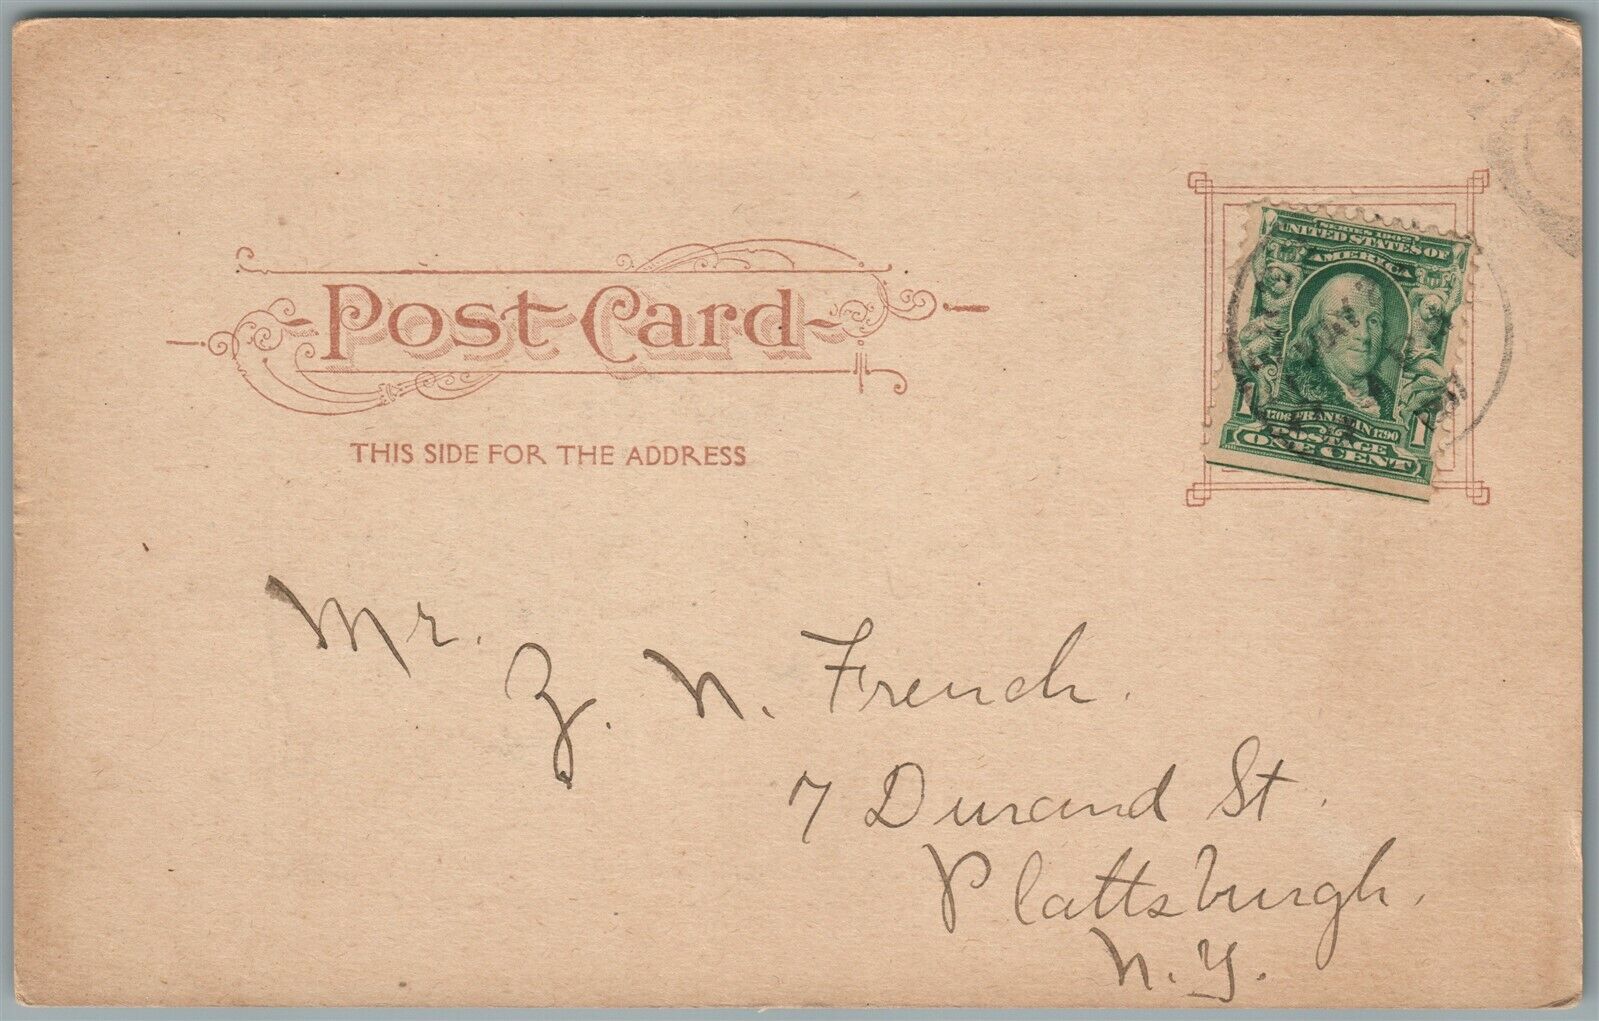 Post Card
THIS SIDE FOR THE ADDRESS
SERIES 1902
UNITED STATES OF
AMERICA
1706 FRANKLIN 1790
1 POSTAGE 1
ONE CENT
Mr.
Z. N. French.
7 Durand St.
Plattsburgh.
N.Y.